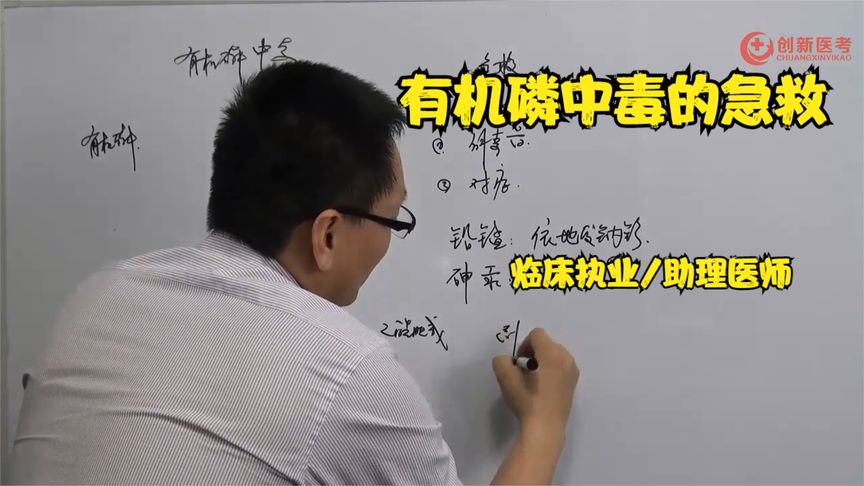 创新医考
CHUANGXINYIKAO
有机磷中毒
急救
有机磷中毒的急救
有机磷
② 解毒
③ 对症
铅镉：依地酸钙钠
砷汞
临床执业/助理医师